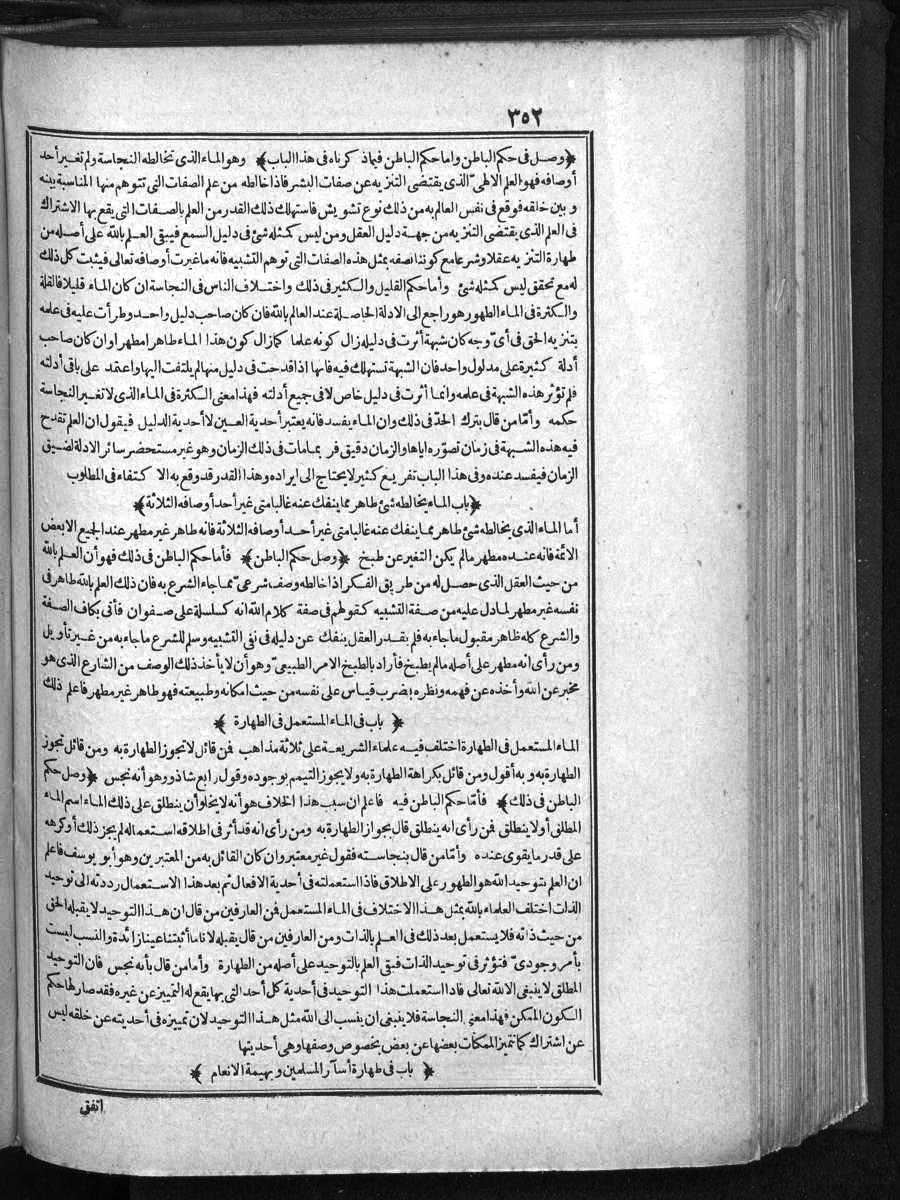 ٣٥٢
﴿وصل فى حكم الباطن وأما حكم الباطن فيماذ كرناه فى هذا الباب﴾ وهو الماء الذى تخالطه النجاسة ولم تغير أحد
أوصافه فهو العلم الالهىّ الذى يقتضى التنزيه عن صفات البشر فاذا خالطه من علم الصفات التى تتوهم منها المناسبة بينه
وبين خلقه فوقع فى نفس العالم به من ذلك نوع تشويش فاستهلك ذلك القدر من العلم بالصفات التى يقع بها الاشتراك
فى العلم الذى يقتضى التنزيه من جهة دليل العقل ومن ليس كمثله شئ فى دليل السمع فيبقى العلم بالله على أصله من
طهارة التنزيه عقلا وشرعا مع كوننا نصفه بمثل هذه الصفات التى توهم التشبيه فانه ما غيرت أوصافه تعالى فيثبت كل ذلك
له مع تحقق ليس كمثله شئ وأما حكم القليل والكثير فى ذلك واختلاف الناس فى النجاسة ان كان الماء قليلا فالقلة
والكثرة فى الماء الطهور هو راجع الى الادلة الحاصلة عند العالم بالله فان كان صاحب دليل واحد وطرأت عليه فى علمه
بتنزيه الحق فى أىّ وجه كان شبهة أثرت فى دليله زال كونه علما كما زال كون هذا الماء طاهرا مطهرا وان كان صاحب
أدلة كثيرة على مدلول واحد فان الشبهة تستهلك فيه فانها اذا قدحت فى دليل منها لم يلتفت اليها واعتمد على باقى أدلته
فلم تؤثر هذه الشبهة فى علمه وانما أثرت فى دليل خاص لا فى جميع أدلته فهذا معنى الكثرة فى الماء الذى لا تغير النجاسة
حكمه وأمّا من قال بترك الحدّ فى ذلك وان الماء يفسد فانه يعتبر أحدية العين لا أحدية الدليل فيقول ان العلم تقدح
فيه هذه الشبهة فى زمان تصوّره اياها والزمان دقيق فر بمامات فى ذلك الزمان وهو غير مستحضر سائر الادلة لضيق
الزمان فيفسد عنده وفى هذا الباب تفريع كثير لا يحتاج الى ايراده وهذا القدر قد وقع به الا كتفاء فى المطلوب
﴿باب الماء يخالطه شئ طاهر مما ينفك عنه غالبا متى غير أحد أوصافه الثلاثة﴾
أما الماء الذى يخالطه شئ طاهر مما ينفك عنه غالبا متى غير أحد أوصافه الثلاثة فانه طاهر غير مطهر عند الجميع الا بعض
الائمة فانه عنده مطهر ما لم يكن التغير عن طبخ ﴿وصل حكم الباطن﴾ فأما حكم الباطن فى ذلك فهو أن العلم بالله
من حيث العقل الذى حصل له من طريق الفكر اذا خالطه وصف شرعىّ مما جاء الشرع به فان ذلك العلم بالله طاهر فى
نفسه غير مطهر لما دل عليه من صفة التشبيه كقولهم فى صفة كلام الله انه كسلسلة على صفوان فأتى بكاف الصفة
والشرع كله ظاهر مقبول ما جاء به فلم يقدر العقل ينفك عن دليله فى نفى التشبيه وسلم للشرع ما جاء به من غير تأويل
ومن رأى انه مطهر على أصله ما لم يطبخ فأراد بالطبخ الامر الطبيعىّ وهو أن لا يأخذ ذلك الوصف من الشارع الذى هو
مخبر عن الله وأخذه عن فهمه ونظره بضرب قياس على نفسه من حيث امكانه وطبيعته فهو طاهر غير مطهر فاعلم ذلك
﴿باب فى الماء المستعمل فى الطهارة﴾
الماء المستعمل فى الطهارة اختلف فيه علماء الشريعة على ثلاثة مذاهب فمن قائل لا تجوز الطهارة به ومن قائل تجوز
الطهارة به وبه أقول ومن قائل بكراهة الطهارة به ولا يجوز التيمم بوجوده وقول رابع شاذ وهو أنه نجس ﴿وصل حكم
الباطن فى ذلك﴾ فأمّا حكم الباطن فيه فاعلم ان سبب هذا الخلاف هو أنه لا يخلو أن ينطلق على ذلك الماء اسم الماء
المطلق أو لا ينطلق فمن رأى انه ينطلق قال بجواز الطهارة به ومن رأى انه قد أثر فى اطلاقه استعماله لم يجز ذلك أو كرهه
على قدر ما يقوى عنده وأمّا من قال بنجاسته فقول غير معتبر وان كان القائل به من المعتبرين وهو أبو يوسف فاعلم
ان العلم بتوحيد الله هو الطهور على الاطلاق فاذا استعملته فى أحدية الافعال ثم بعد هذا الاستعمال رددته الى توحيد
الذات اختلف العلماء بالله بمثل هذا الاختلاف فى الماء المستعمل فمن العارفين من قال ان هذا التوحيد لا يقبله الحق
من حيث ذاته فلا يستعمل بعد ذلك فى العلم بالذات ومن العارفين من قال يقبله لانا ما أثبتنا عينا زائدة والنسب ليست
بأمر وجودىّ فتؤثر فى توحيد الذات فبقى العلم بالتوحيد على أصله من الطهارة وأما من قال بأنه نجس فان التوحيد
المطلق لا ينبغى الا لله تعالى فاذا استعملت هذا التوحيد فى أحدية كل أحد التى بها يقع له التمييز عن غيره فقد صار لها حكم
الكون الممكن فهذا معنى النجاسة فلا ينبغى ان ينسب الى الله مثل هذا التوحيد لان تمييزه فى أحديته عن خلقه ليس
عن اشتراك كما تتميز الممكنات بعضها عن بعض بخصوص وصفها وهى أحديتها
﴿باب فى طهارة أسآر المسلمين وبهيمة الانعام﴾
اتفق